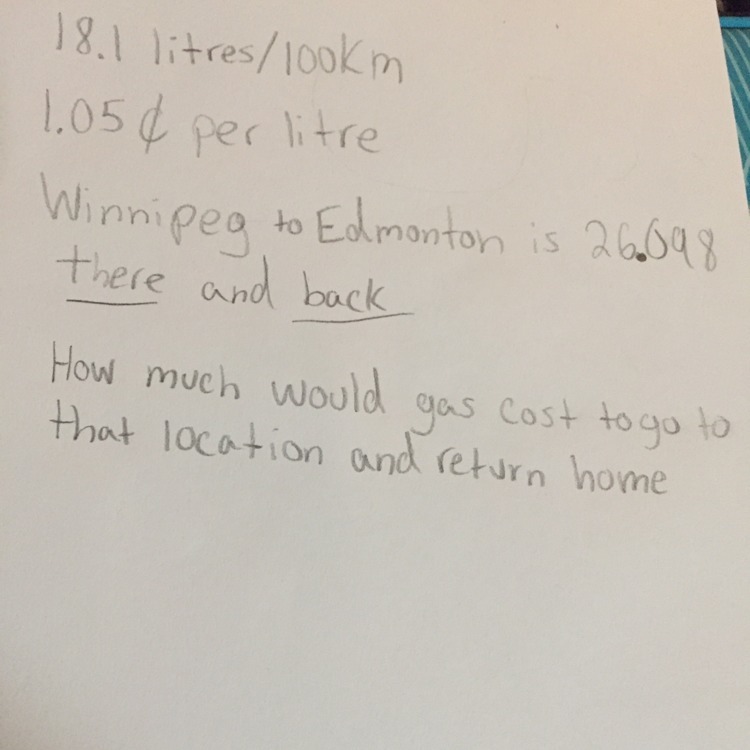 18.1 litres/100Km
1.05¢ per litre
Winnipeg to Edmonton is 26.098
there and back
How much would gas cost to go to
that location and return home